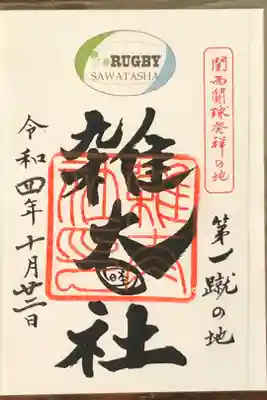 RUGBY
SAWATASHA
関西蘭球発祥の地
第一蹴の地
雑太社
令和四年十月廿二日